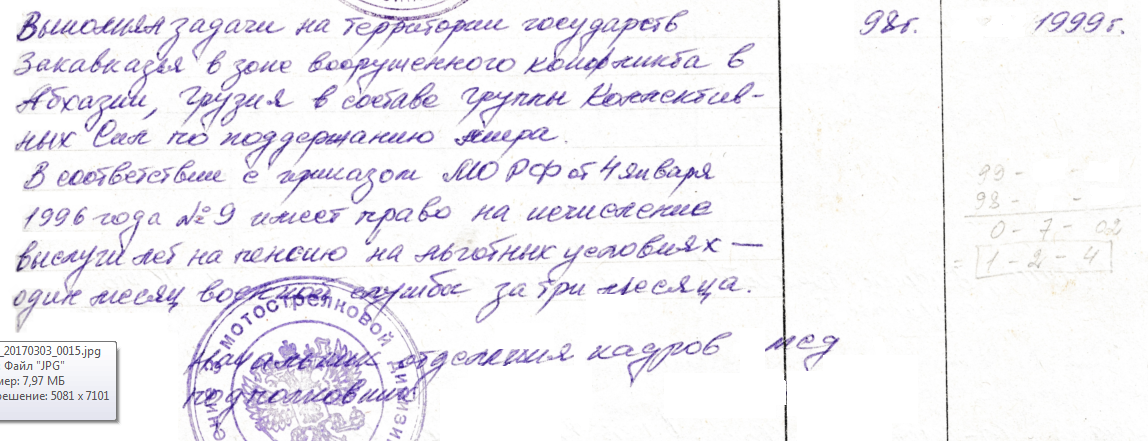 Выполнял задачи на территории государств 98г. 1999г.
Закавказья в зоне вооруженного конфликта в
Абхазии, Грузия в составе группы Коллектив-
ных Сил по поддержанию мира.
В соответствие с приказом МО РФ от 4 января
1996 года №9 имеет право на исчисление
выслуги лет на пенсию на льготных условиях —
один месяц военной службы за три месяца.
99 - -
98 - -
0 - 7 - 02
= 1 - 2 - 4
МОТОСТРЕЛКОВОЙ ДИВИЗИ
Начальник отделения кадров мсд
подполковник
_20170303_0015.jpg
Файл "JPG"
мер: 7,97 МБ
решение: 5081 x 7101